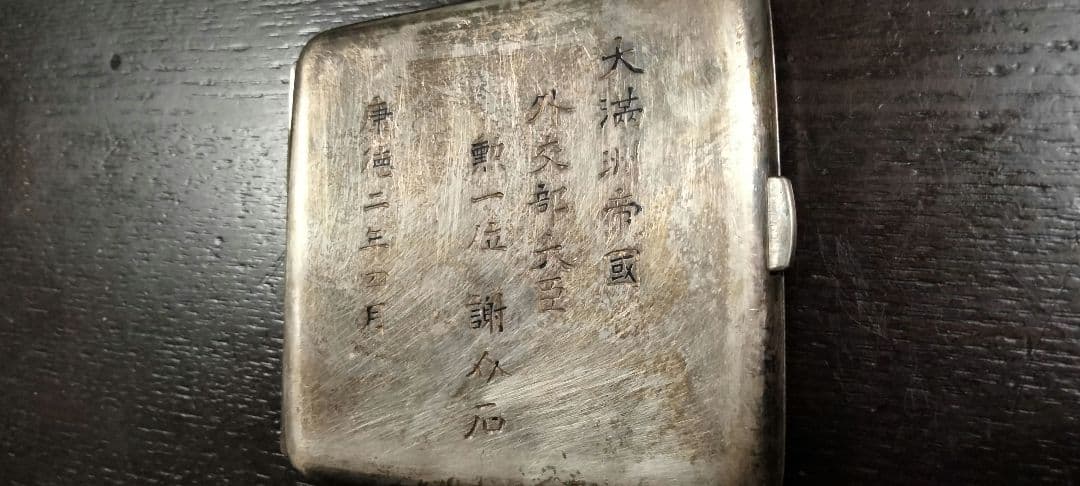 大滿洲帝國
外交部大臣
勲一位 謝介石
康德二年四月